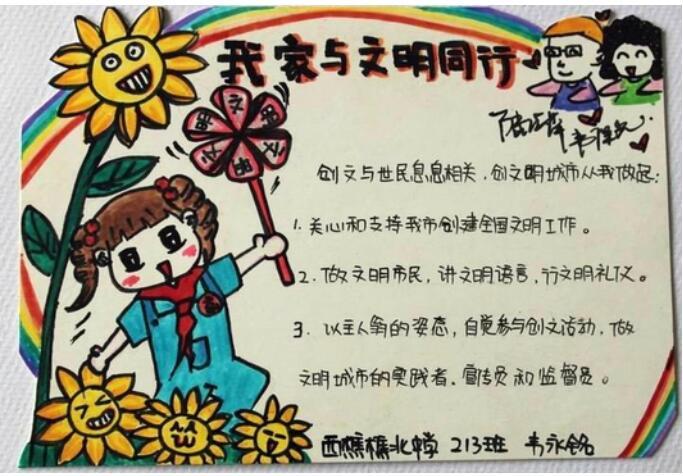 我家与文明同行
文明文明文明
创文与世民息息相关，创文明城市从我做起：
1. 关心和支持我市创建全国文明工作。
2. 做文明市民，讲文明语言，行文明礼仪。
3. 以主人翁的姿态，自觉参与创文活动，做
文明城市的实践者、宣传员和监督员。
西樵樵北中学 213班 韦永铭